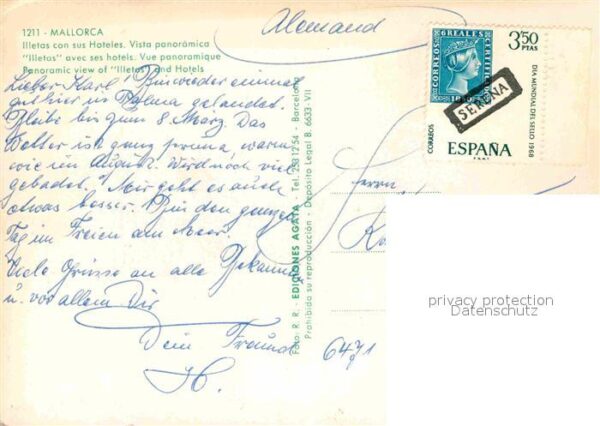 1211 - MALLORCA
Illetas con sus Hoteles. Vista panorámica
"Illetas" avec ses hotels. Vue panoramique
Panoramic view of "Illetas" and Hotels
Alemand
Lieber Karl! Bin wieder einmal
gut hier in Palma gelandet.
Bleibe bis zum 8. März. Das
Wetter ist ganz prima warm
wie im August. Wird noch viel
gebadet. Mir geht es auch
etwas besser. Bin den ganzen
Tag im Freien am Meer.
Viele Grüsse an alle Bekannten
u. vor allem Dir
Dein Freund
Foto: R. R. - EDICIONES AGATA - Tel. 2531254 - Barcelona
Prohibida su reproducción - Depósito Legal B. 6633-VII
CORREOS
6 REALES
CERTIFICADO
1850
3,50
PTAS
SERONA
DIA MUNDIAL DEL SELLO 1968
CORREOS
ESPAÑA
Herrn
6471
privacy protection
Datenschutz